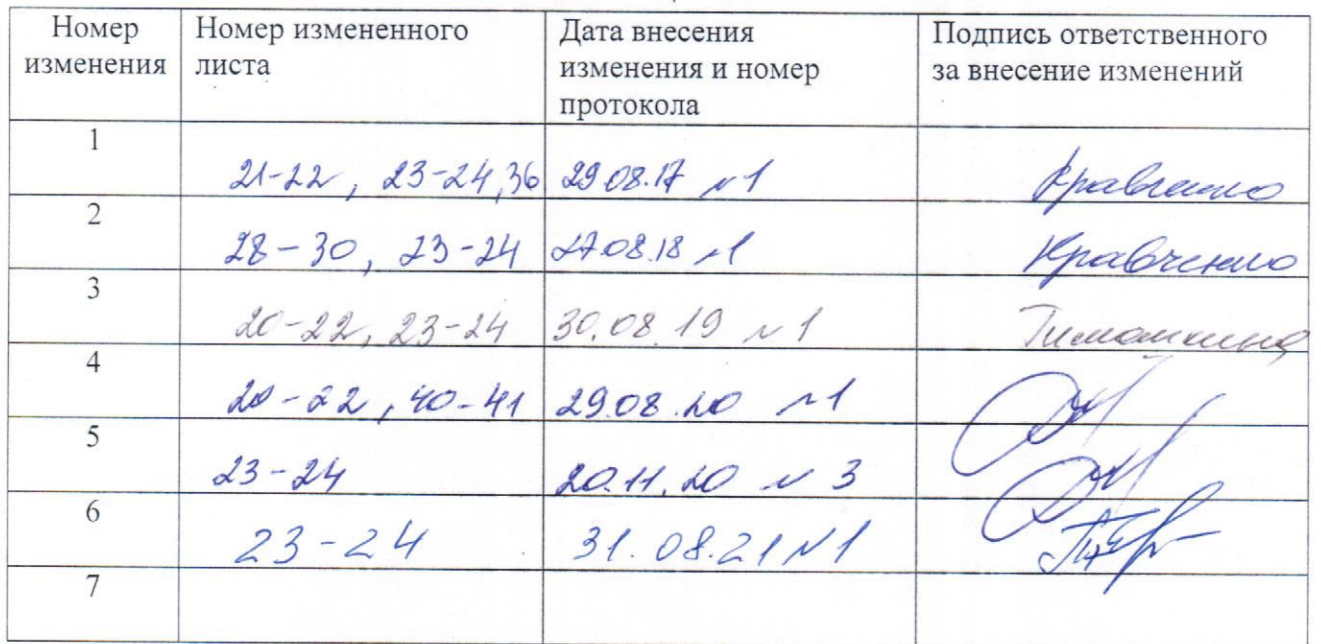 Номер изменения Номер измененного листа Дата внесения изменения и номер протокола Подпись ответственного за внесение изменений
1 21-22, 23-24,36 29.08.17 №1 Кравченко
2 28-30, 23-24 27.08.18 №1 Кравченко
3 20-22, 23-24 30.08.19 №1 Тимошкина
4 20-22, 40-41 29.08.20 №1
5 23-24 20.11.20 №3
6 23-24 31.08.21 №1
7